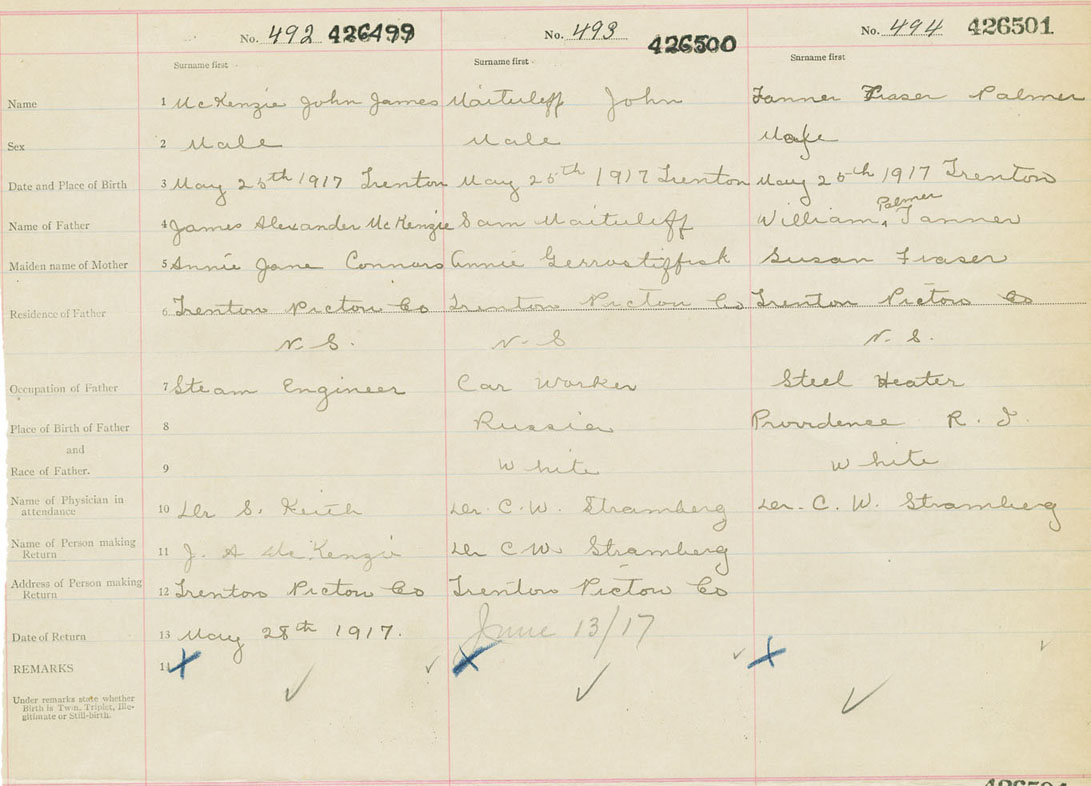 No. 492 426499 No. 493 426500 No. 494 426501
Surname first Surname first Surname first
Name 1 McKenzie John James Maituleff John Tanner Fraser Palmer
Sex 2 Male Male Male
Date and Place of Birth 3 May 25th 1917 Trenton May 25th 1917 Trenton May 26th 1917 Trenton
Palmer
Name of Father 4 James Alexander McKenzie Sam Maituleff William Tanner
Maiden name of Mother 5 Annie Jane Connors Annie Susan Fraser
Residence of Father 6 Trenton Pictou Co Trenton Pictou Co Trenton Pictou Co
N.S. N-S N.S.
Occupation of Father 7 Steam Engineer Car Worker Steel Heater
Place of Birth of Father 8 Russia Providence R. I.
and
Race of Father. 9 White White
Name of Physician in
attendance 10 Dr S. Keith Dr. C. W. Stramberg Dr. C. W. Stramberg
Name of Person making
Return 11 J. A McKenzie Dr C W. Stramberg
Address of Person making
Return 12 Trenton Pictou Co Trenton Pictou Co
Date of Return 13 May 28th 1917. June 13/17
REMARKS 14
Under remarks state whether
Birth is Twin, Triplet, Ille-
gitimate or Still-birth.